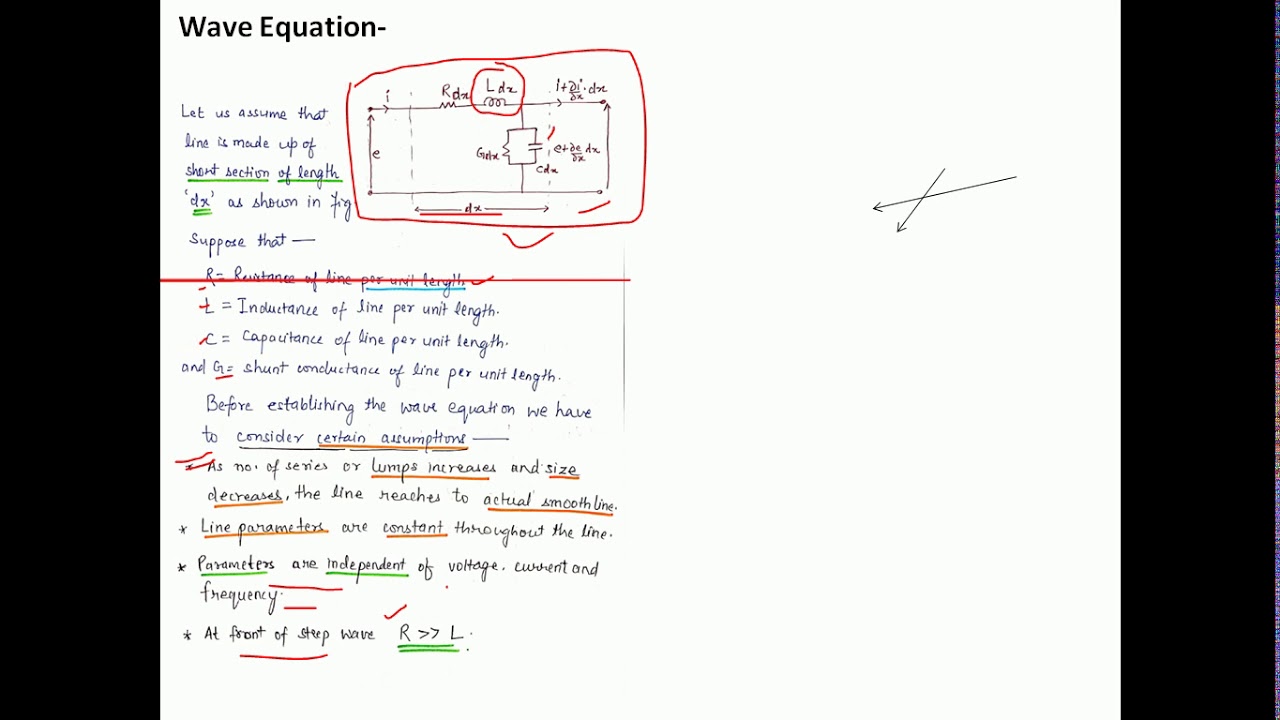 Wave Equation-
Let us assume that
line is made up of
short section of length
'dx' as shown in fig
i
Rdx
Ldx
i+∂i/∂x·dx
e
Gdx
Cdx
e+∂e/∂x dx
dx
Suppose that —
R = Resistance of line per unit length
L = Inductance of line per unit length.
C = Capacitance of line per unit length.
and G = shunt conductance of line per unit length.
Before establishing the wave equation we have
to consider certain assumptions —
* As no. of series or lumps increases and size
decreases, the line reaches to actual smooth line.
* Line parameters are constant throughout the line.
* Parameters are independent of voltage, current and
frequency.
* At front of steep wave R >> L.